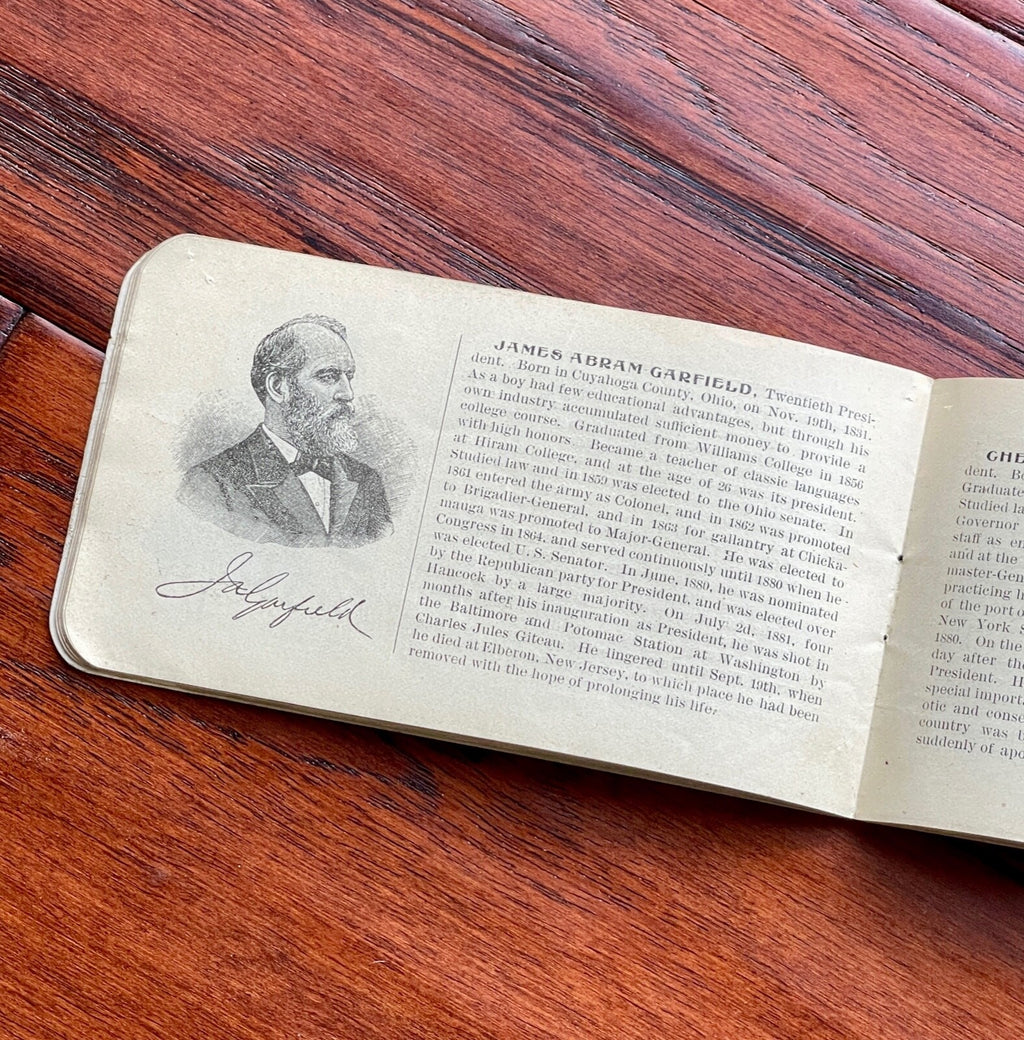 JAMES ABRAM GARFIELD, Twentieth Presi-
dent. Born in Cuyahoga County, Ohio, on Nov. 19th, 1831.
As a boy had few educational advantages, but through his
own industry accumulated sufficient money to provide a
college course. Graduated from Williams College in 1856
with high honors Became a teacher of classic languages
at Hiram College, and at the age of 26 was its president.
Studied law and in 1859 was elected to the Ohio senate. In
1861 entered the army as Colonel, and in 1862 was promoted
to Brigadier-General, and in 1863 for gallantry at Chicka-
mauga was promoted to Major-General. He was elected to
Congress in 1864, and served continuously until 1880 when he
was elected U. S. Senator. In June, 1880, he was nominated
by the Republican party for President, and was elected over
Hancock by a large majority. On July 2d, 1881, four
months after his inauguration as President, he was shot in
the Baltimore and Potomac Station at Washington by
Charles Jules Giteau. He lingered until Sept. 19th, when
he died at Elberon, New Jersey, to which place he had been
removed with the hope of prolonging his life.
JAGarfield
CHE
dent. Bo
Graduate
Studied la
Governor
staff as en
and at the
master-Gen
practicing
of the port o
New York
1880. On the
day after the
President. H
special import
otic and cons
country was
suddenly of apo